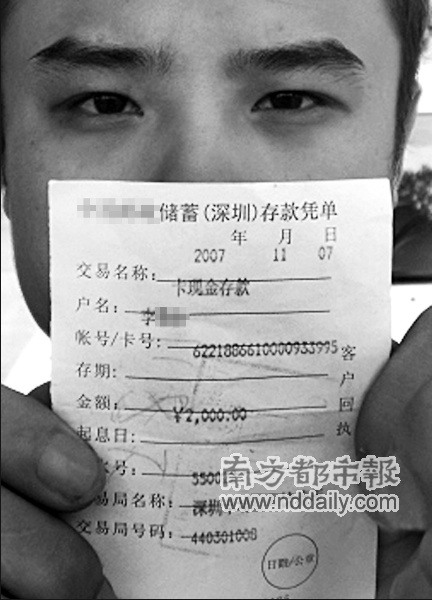 储蓄(深圳)存款凭单
年 月 日
2007 11 07
交易名称: 卡现金存款
户名: 李
帐号/卡号: 6221886610000933995
存期:
金额: ¥2,000.00
起息日:
号: 5500
易局名称: 深圳
交易局号码: 440301008
客户回执
日戳/公章
南方都市報
www.nddaily.com